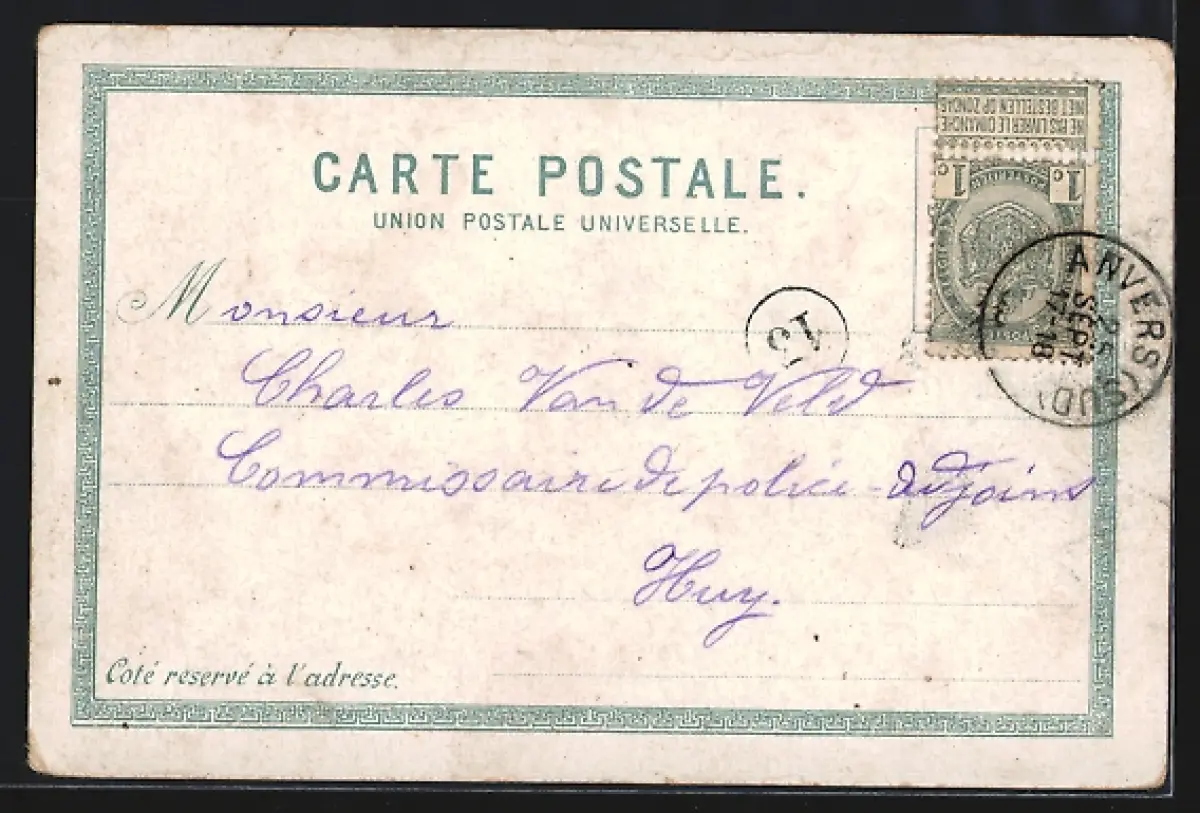 CARTE POSTALE.
UNION POSTALE UNIVERSELLE.
NE PAS LIVRER LE DIMANCHE
NIET BESTELLEN OP ZONDAG
1c 1c
ANVERS (SUD)
25
SEPT.
17-18
13
Monsieur
Charles Van de Veld
Commissaire de police-adjoint
Huy.
Coté reservé à l'adresse.